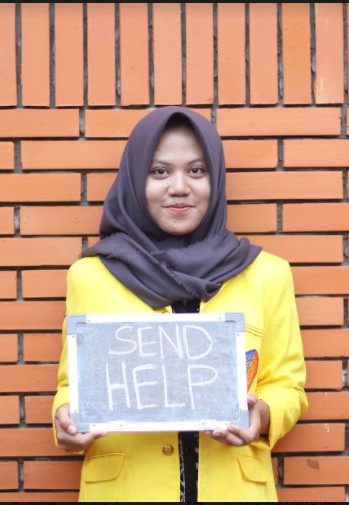 SEND
HELP